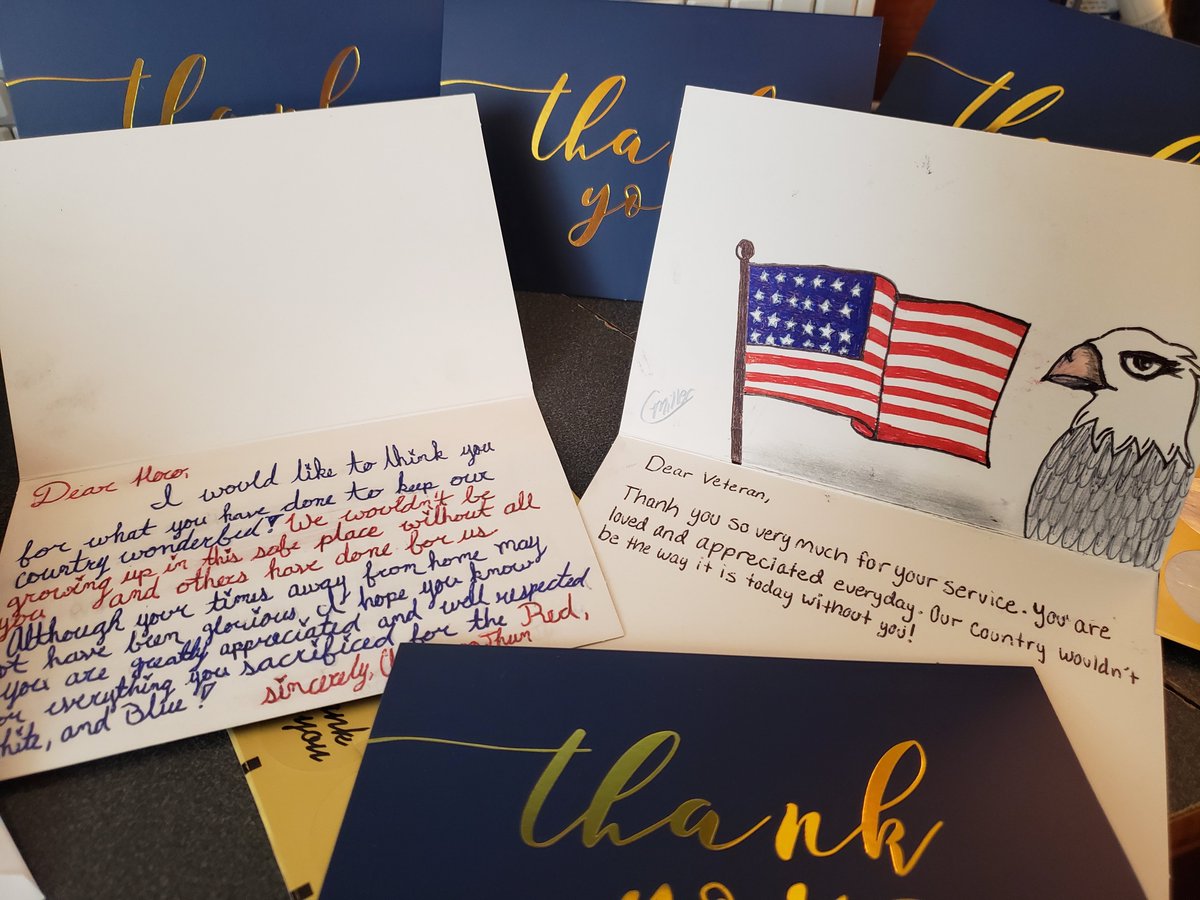 thank
tha
yo
Dear Hero,
I would like to think you
for what you have done to keep our
country wonderful! We wouldn't be
growing up in this safe place without all
you and others have done for us
Although your times away from home may
not have been glorious, I hope you know
you are greatly appreciated and well respected
for everything you sacrificed for the Red,
White, and Blue!
sincerely,
GMiller
Dear Veteran,
Thank you so very much for your service. You are
loved and appreciated everyday. Our country wouldn't
be the way it is today without you!
you
thank